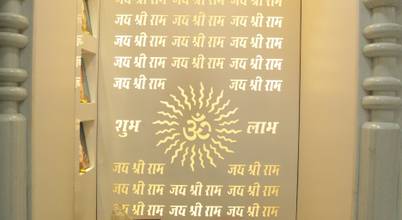 जय श्री राम जय श्री राम जय श्री राम
जय श्री राम जय श्री राम जय श्री राम
जय श्री राम जय श्री राम जय श्री राम
जय श्री राम जय श्री राम जय श्री राम
जय श्री राम जय श्री राम
शुभ ॐ लाभ
जय श्री राम जय श्री राम
जय श्री राम जय श्री राम जय श्री राम
जय श्री राम जय श्री राम